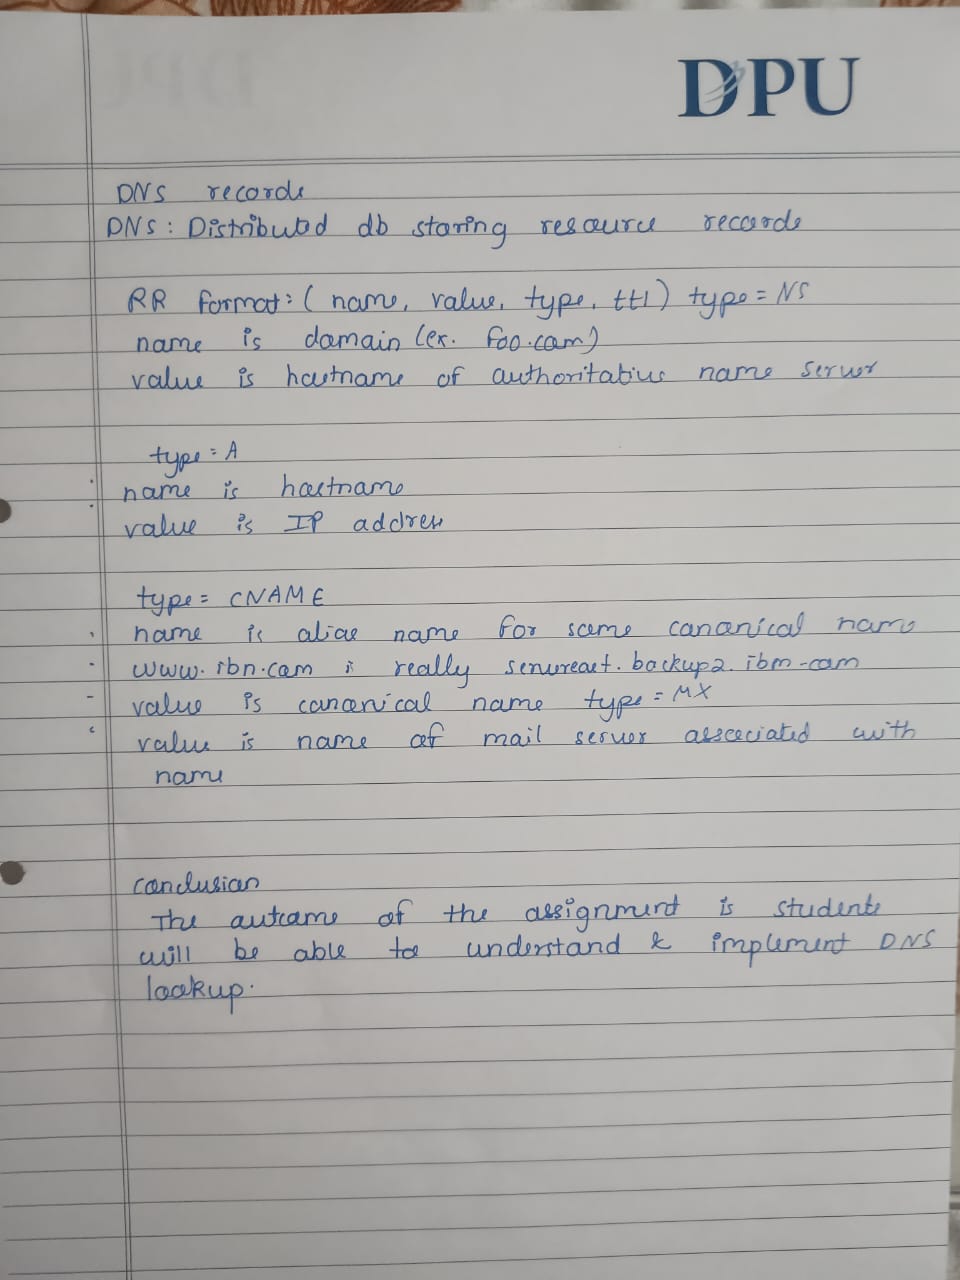 DPU
DNS records
DNS: Distributed db storing resource records
RR format: (name, value, type, ttl) type = NS
name is domain (ex. foo.com)
value is hostname of authoritative name server
type = A
name is hostname
value is IP address
type = CNAME
name is alias name for some canonical name
www.ibn.com is really servereast.backup2.ibm.com
value is canonical name type = MX
value is name of mail server associated with
name
conclusion
The outcome of the assignment is students
will be able to understand & implement DNS
lookup.